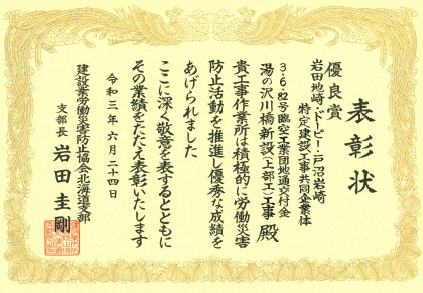 表彰状
優良賞
岩田地崎・ドーピー・戸沼岩崎
特定建設工事共同企業体
3・6・82号臨空工業団地通交付金
湯の沢川橋新設(上部工)工事 殿
貴工事作業所は積極的に労働災害
防止活動を推進し優秀な成績を
あげられました
ここに深く敬意を表するとともに
その業績をたたえ表彰いたします
令和三年六月二十四日
建設業労働災害防止協会北海道支部
支部長 岩田圭剛